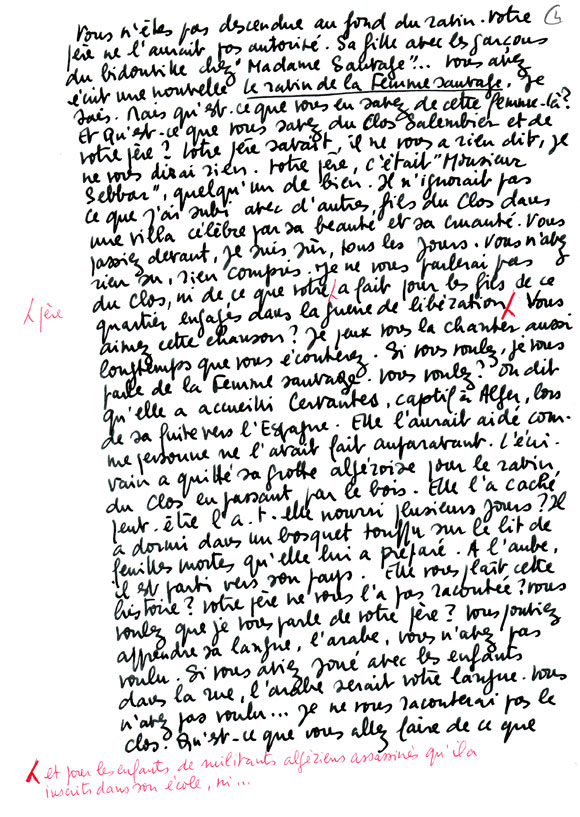 4
Vous n'êtes pas descendue au fond du ravin. Votre
père ne l'aurait pas autorisé. Sa fille avec les garçons
du bidonville chez "Madame Sauvage"... vous avez
écrit une nouvelle Le ravin de la Femme sauvage, je
sais. Mais qu'est-ce que vous en savez de cette femme-là?
Et Qu'est-ce que vous savez du Clos Salembier et de
votre père? Votre père savait, il ne vous a rien dit, je
ne vous dirai rien. Votre père, c'était "Monsieur
Sebbar", quelqu'un de bien. Il n'ignorait pas
ce que j'ai subi avec d'autres, fils du Clos dans
une villa célèbre par sa beauté et sa cruauté. Vous
passiez devant, je suis sûr, tous les jours. Vous n'avez
rien su, rien compris. Je ne vous parlerai pas
du Clos, ni de ce que votre a fait pour les fils de ce
père
quartier engagés dans la guerre de libération Vous
aimez cette chanson? Je peux vous la chanter aussi
longtemps que vous écouterez. Si vous voulez, je vous
parle de la Femme sauvage. Vous voulez? On dit
qu'elle a accueilli Cervantes, captif à Alger, lors
de sa fuite vers l'Espagne. Elle l'aurait aidé com-
me personne ne l'avait fait auparavant. L'écri-
vain a quitté sa grotte algéroise pour le ravin
du Clos en passant par le bois. Elle l'a caché
peut-être l'a-t-elle nourri plusieurs jours? Il
a dormi dans un bosquet touffu sur le lit de
feuilles mortes qu'elle lui a préparé. A l'aube,
il est parti vers son pays. Elle vous plaît cette
histoire? Votre père ne vous l'a pas racontée? Vous
voulez que je vous parle de votre père? Vous pouviez
apprendre sa langue, l'arabe, vous n'avez pas
voulu. Si vous aviez joué avec les enfants
dans la rue, l'arabe serait votre langue. Vous
n'avez pas voulu... Je ne vous raconterai pas le
Clos. Qu'est-ce que vous allez faire de ce que
et pour les enfants de militants algériens assassinés qu'il a
inscrits dans son école, ni...